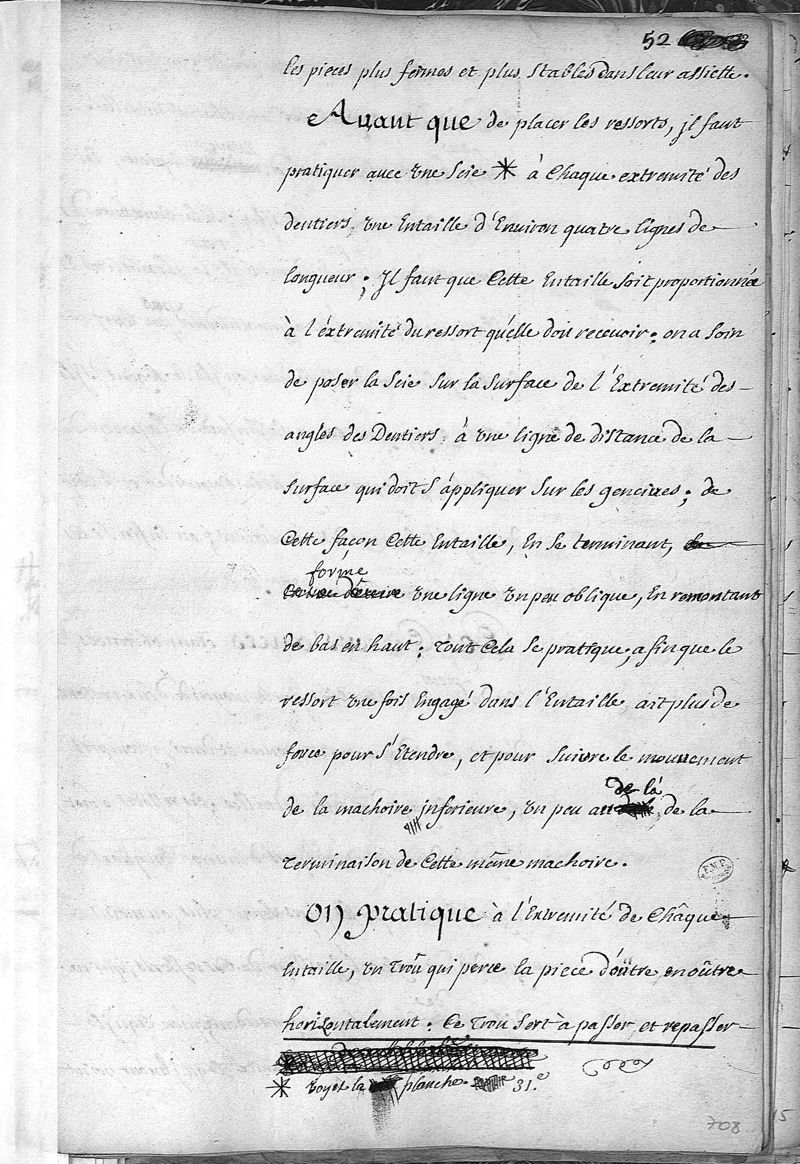 52
les pieces plus fermes et plus stables dans leur assiette.
Auant que de placer les ressorts, jl faut
pratiquer auec vne scie * à Chaque extremité des
dentiers, vne Entaille d'Environ quatre lignes de
longueur ; Jl faut que Cette Entaille soit proportionnée
à l'éxtremité du ressort qu'elle doit receuoir ; on a soin
de poser la Scie sur la surface de l'Extremité des
angles des Dentiers, à vne ligne de distance de la
surface qui doit s'áppliquer sur les genciues ; de
Cette façon Cette Entaille, En se terminant,
forme
vne ligne vn peu oblique, En remontant
de bas en haut ; Tout Cela se pratique, afin que le
ressort vne fois Engagé dans l'Entaille ait plus de
force pour s'Etendre, et pour suivre le mouuement
de là
de la machoire jnferieure, vn peu au de la
Terminaison de Cette même machoire.
On pratique à l'Extremité de Châque
Entaille, vn Troû qui perce la piece d'oûtre en oûtre
horizontalement : Ce Trou sert à passer et repasser
* voyés la planche 31.e
P.M.P.
708